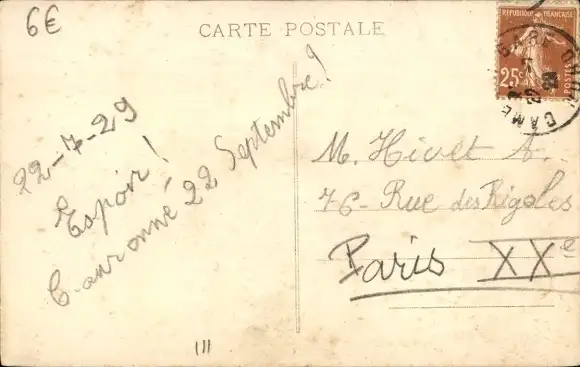 6€
CARTE POSTALE
REPUBLIQUE FRANÇAISE
25c
POSTES
GARE
22-7-29
Espoir!
Couronné 22 Septembre!
M. Hivet A.
76- Rue des Rigoles
Paris XXe